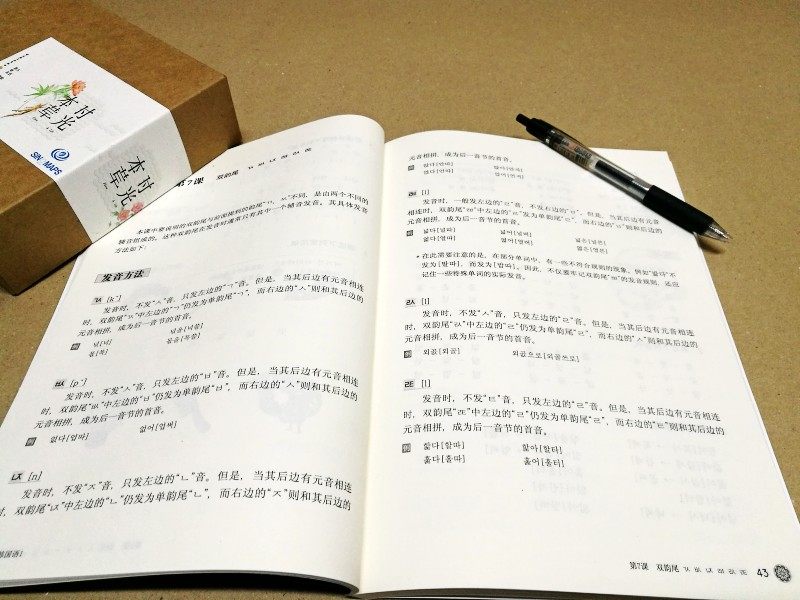 时光
本草
SIN MAPS
本草
第7课 双韵尾 ㄳ ㅄ ㄵ ㄼ ㄽ ㄾ
方法如下：
发音方法
ㄳ [k˺]
发音时，不发“ㅅ”音，只发左边的“ㄱ”音。但是，当其后边有元音相连
时，双韵尾“ㄳ”中左边的“ㄱ”仍发为单韵尾“ㄱ”，而右边的“ㅅ”则和其后边的
元音相拼，成为后一音节的首音。
例 넋[넉] 넋은[넉슨]
몫[목] 몫은[목슨]
ㅄ [p˺]
发音时，不发“ㅅ”音，只发左边的“ㅂ”音。但是，当其后边有元音相连
时，双韵尾“ㅄ”中左边的“ㅂ”仍发为单韵尾“ㅂ”，而右边的“ㅅ”则和其后边的
元音相拼，成为后一音节的首音。
ㄵ [n]
发音时，不发“ㅈ”音，只发左边的“ㄴ”音。但是，当其后边有元音相连
时，双韵尾“ㄵ”中左边的“ㄴ”仍发为单韵尾“ㄴ”，而右边的“ㅈ”则和其后边的
韩国语1
元音相拼，成为后一音节的首音。
ㄼ [l]
发音时，一般发左边的“ㄹ”音，不发右边的“ㅂ”。但是，当其后边有元音
相连时，双韵尾“ㄼ”中左边的“ㄹ”发为单韵尾“ㄹ”，而右边的“ㅂ”则和后边的
元音相拼，成为后一音节的首音。
• 在此需要注意的是，在部分单词中，有一些不符合规则的现象，例如“밟다”不
发为[발따]，而发为[밥따]。因此，不仅要牢记双韵尾“ㄼ”的发音规则，还应
记住一些特殊单词的实际发音。
ㄽ [l]
发音时，不发“ㅅ”音，只发左边的“ㄹ”音。但是，当其后边有元音相连
时，双韵尾“ㄽ”中左边的“ㄹ”仍发为单韵尾“ㄹ”，而右边的“ㅅ”则和其后边的
元音相拼，成为后一音节的首音。
例 외곬[외골] 외곬으로[외골쓰로]
ㄾ [l]
发音时，不发“ㅌ”音，只发左边的“ㄹ”音。但是，当其后边有元音相连
时，双韵尾“ㄾ”中左边的“ㄹ”仍发为单韵尾“ㄹ”，而右边的“ㅌ”则和其后边的
元音相拼，成为后一音节的首音。
例 핥다[할따] 핥아[할타]
훑다[훌따] 훑어[훌터]
第7课 双韵尾 ㄳ ㅄ ㄵ ㄼ ㄽ ㄾ 43